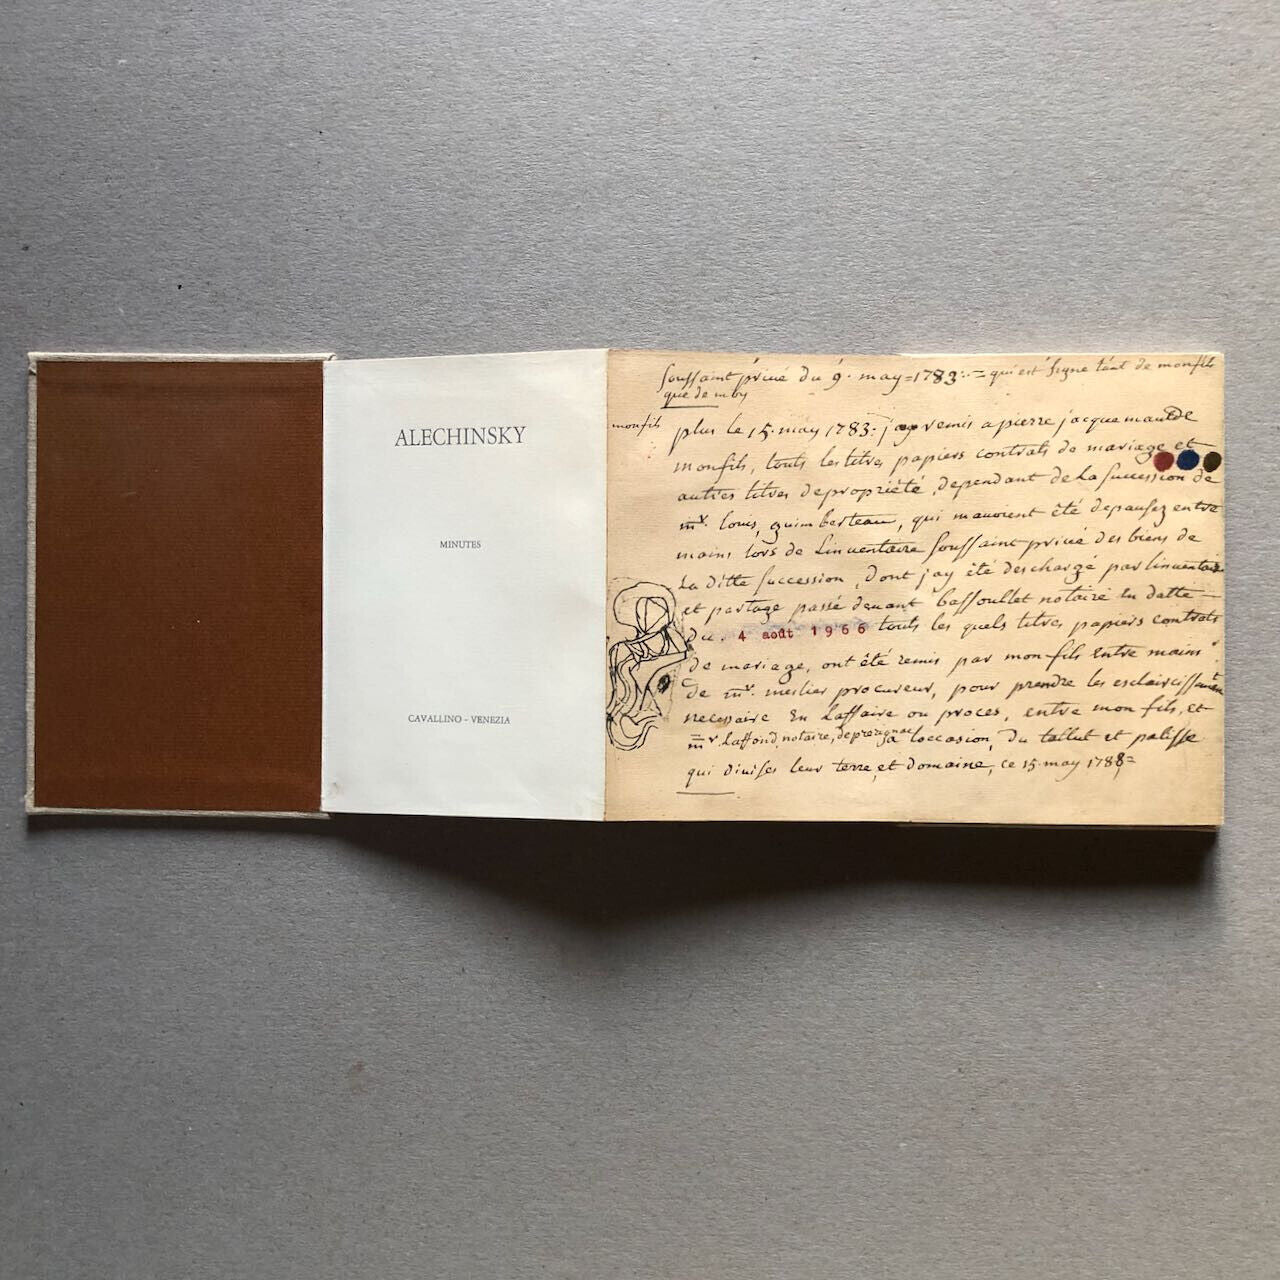 ALECHINSKY
MINUTES
CAVALLINO - VENEZIA
soussaint privé du 9. may = 1783 = qui est signé tant de monfils
que de moy
monfils
plus le 15. may 1783 = j'ay remis a pierre jacque maulde
monfils, touts les titres papiers contrats de mariage et
autres titres de propriété, dependant de la succession de
mr. louis, guimberteau, qui mauoient été deposez entre
mains lors de Linuentaire soussaint privé des biens de
La ditte succession, dont j'ay été deschargé par linuentaire
et partage passé deuant baffoullet notaire En datte
du. 4 août 1966 touts les quels titres papiers contrats
de mariage, ont été remis par mon fils Entre mains
de mr. meslier procureur, pour prendre les esclaircissement
necessaire En Laffaire ou proces, entre mon fils, et
mr. Laffond, notaire, a Loccasion, du tallut et palisse
qui diuises leur terre, et domaine, ce 15. may 1788 =